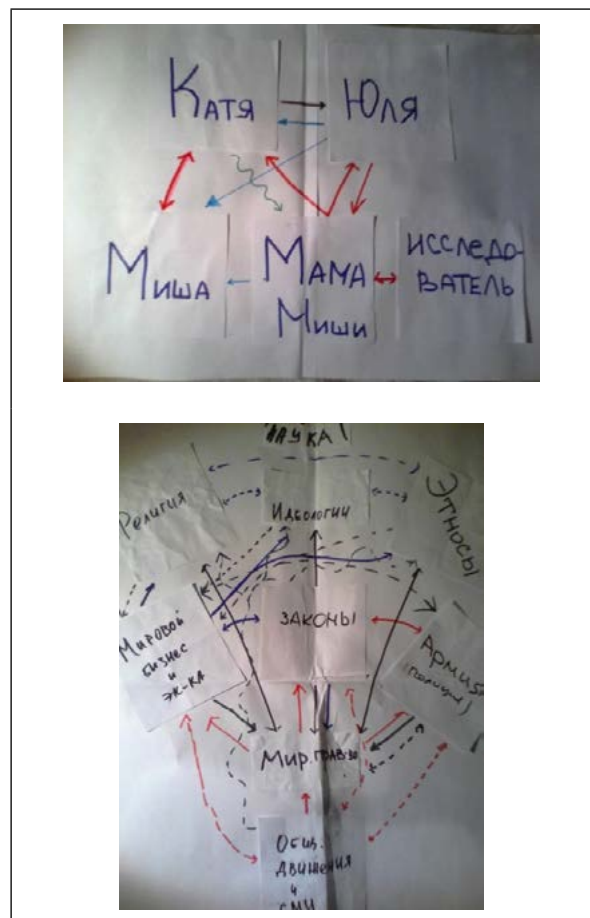 Катя
Юля
Миша
Мама
Миши
исследо-
ватель
НАУКА
Религия
Идеологии
Этносы
Мировой
бизнес
и
эк-ка
Законы
Армия
(полиция)
Мир. прав-во
Общ.
движения
и
СМИ